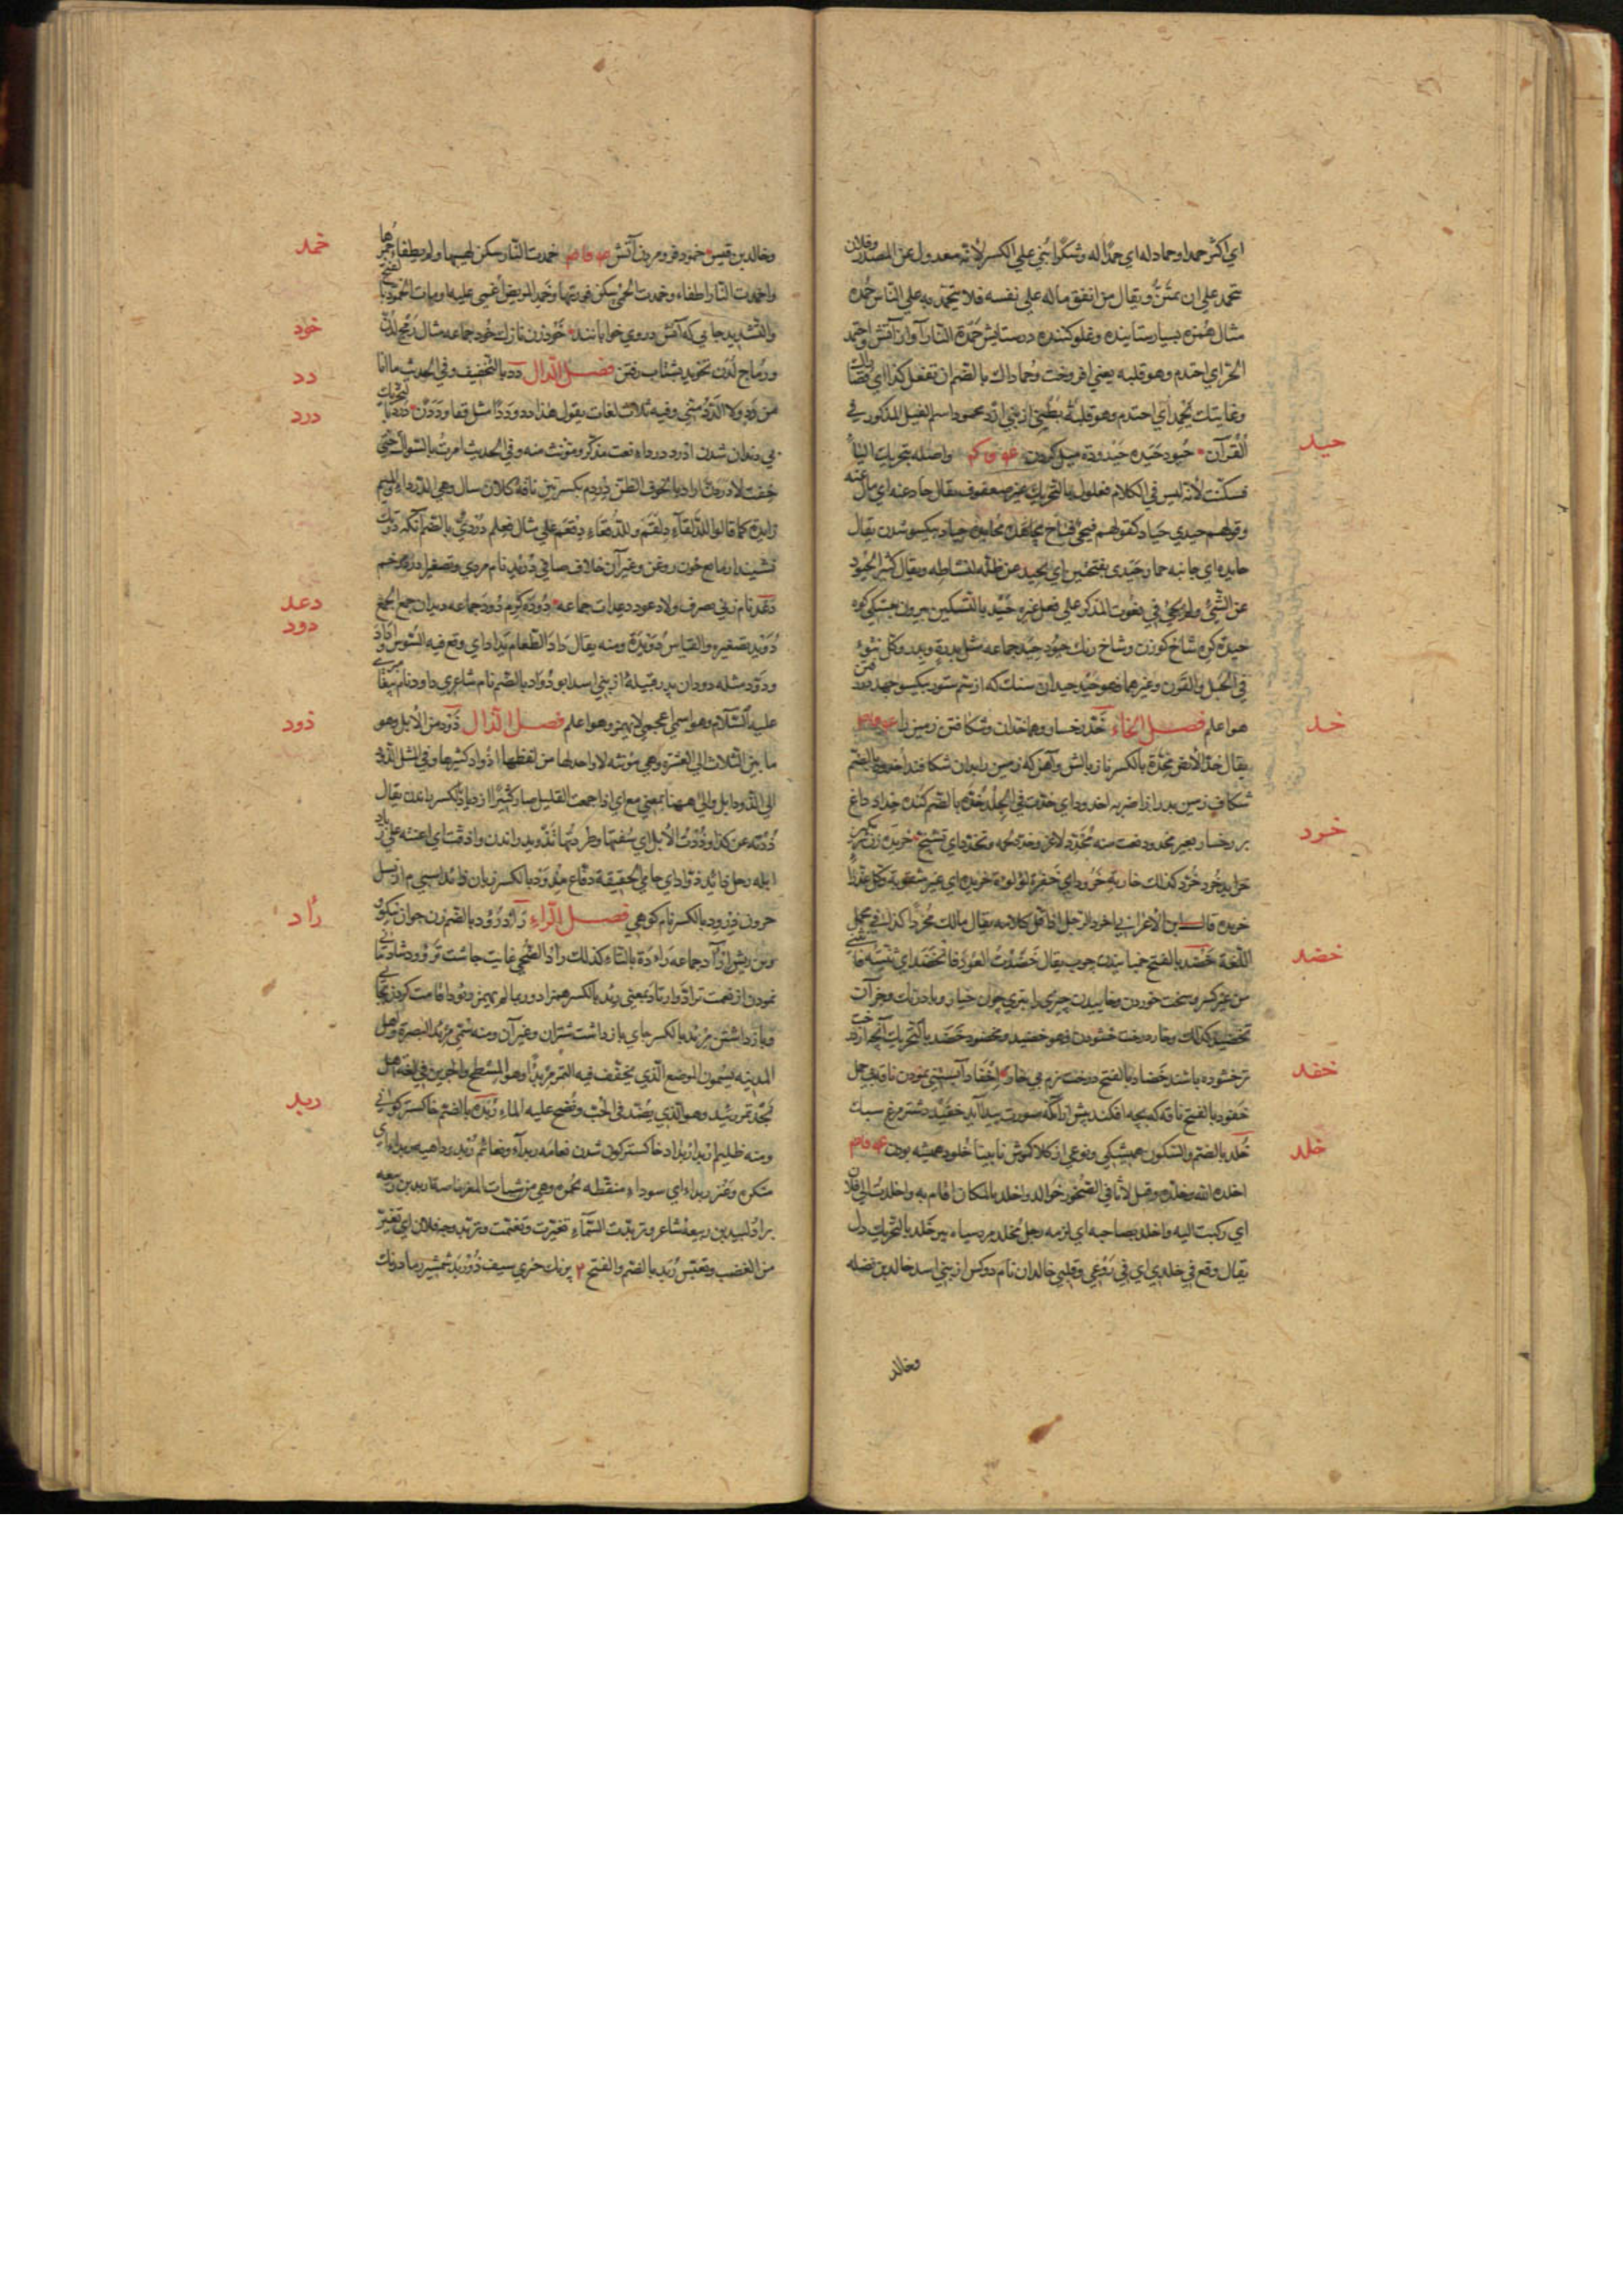 اي اكثر حمدا وحماد له اي حمدا له وشكرا بني علي الكسر لانه معدول عن المصدر وفلان
يتحمد علي اي يمتن ويقال من انفق ماله علي نفسه فلا يتحمد به علي الناس حمده
مثال همزه بسيار ستاينده وغلو كننده در ستايش حمدة النار آواز آتش واحتمد
الحر اي احتدم وهو قلبه يعني افروخت وحماداك بالضم ان تفعل كذا اي قصاراك
وغايتك يحمد اي احتدم وهو قلبه بطني از بني ازد محمود اسم الفيل المذكور في
القرآن حيود حيده حيدودة ميل كردن واصله بتحريك الياء
فسكنت لانه ليس في الكلام فعلول بالتحريك غير صعفوق يقال حاد عنه اي مال عنه
وقولهم حيدي حياد كقولهم فيحي فياح مجاهدة محايدة حياد بيكسو شدن يقال
حايده اي جانبه حمار حيدي بفتحتين اي يحيد عن ظله لنشاطه ويقال كثير الحيود
عن الشيء ولم يجئ في نعوت المذكر علي فعلي غيره حيد بالتسكين بيرون
حيدة كره شاخ كوزن وشاخ رنك حيود حيد جماعه مثل بدرة وبدر وكل نتوء
في الجبل والقرن وغيرهما فهو حيد حيدان سنك كه از سم ستور بيكسو جهد در
هوا علم فصل الخاء خد رخسار وهما خدان وشكافتن زمين را
يقال خد الارض مخدة بالكسر ناز بالش وآهن كه زمين را بدان شكافند اخدود بالضم
شكاف زمين بدرازا ضربه اخدود اي خدت في الجلد خده بالضم كنده خداد داغ
بر رخسار بعير مخدود نعت منه متخدد لاغر وخدد لحمه وتخدد اي تشنج خريده زن بكر
خرايد خرد خرد كذلك جاريه خرود اي خفرة لؤلؤة خريده اي غير مثقوبة وكل عذراء
خريده قال ابن الاعرابي اخرد الرجل اذا قل كلامه يقال مالك مخردا كذا في مجمل
اللغة خضد بالفتح خمانيدن چوب يقال خضدت العود فانخضد اي ثنيته فانثني
من غير كسر وسخت خوردن وخاييدن چيزي را بتري چون خيار وبادرنك وجز آن
تخضيد كذلك وخار درخت خشودن فهو خضيد ومخضود خضد بالتحريك آنچه از درخت
تر خشوده باشند خضاد بالفتح درخت نرم بي خار اخفاد آبستني نمودن ناقه بي حمل
خفود بالفتح ناقه كه بچه افكند پيش از آنكه صورت پيدا آيد خفيدد شتر مرغ سبك
خلد بالضم والسكون هميشكي ونوعي از كلاكموش نابينا خلود هميشه بودن
اخلده الله وخلده وقيل لاثافي الصخور خوالد واخلد بالمكان اقام به واخلدت الي فلان
اي ركنت اليه واخلد بصاحبه اي لزمه رجل مخلد مرد سياه بير خلد بالتحريك دل
يقال وقع في خلدي اي في روعي وقلبي خالدان نام دو كس از بني اسد خالد بن نضله
وخالد
حيد
خد
خرد
خضد
خفد
خلد
وخالد بن قيس خمود فرو مردن آتش خمدت النار سكن لهبها ولم يطفأ جمرها
واخمدت النار اطفاء وخمدت الحمي سكن فورتها وخمد المريض اغمي عليه او مات الخمود بالفتح
والتشديد جايي كه آتش در وي خوابانند خود زن نازك خود جماعه مثال رمح لدن
ورماح لدن تخويد بشتاب رفتن فصل الدال دد بالتخفيف وفي الحديث ما انا
من دد ولا الدد مني وفيه ثلاث لغات يقول هذا دد وددا مثل قفا وددن درد بالتحريك
بي دندان شدن ادرد درداء نعت مذكر ومؤنث منه وفي الحديث امرت بالسواك حتي
خفت لادردن اراد بالخوف الظن دردم بكسرتين ناقة كلان سال وهي الدرداء والميم
زايدة كما قالوا للدلقاء دلقم وللدقعاء دقعم علي مثال فعلم دردي بالضم آنكه در تك
نشيند از مايع چون روغن وغير آن خلاف صافي دريد نام مردي وتصغير ادرد مرخم
دعد نام زني يصرف ولا دعود دعدات جماعه دوده كرم دود جماعه ديدان جمع الجمع
دويد تصغيره والقياس دويدة ومنه يقال داد الطعام يداد اي وقع فيه السوس وداد
ودود مثله دودان پدر قبيلة از بني اسد ابو دؤاد بالضم نام شاعري داود نام پيغامبري
عليه السلام وهو اسم اعجمي لا يهمز وهوا علم فصل الذال ذود من الابل وهو
ما بين الثلاث الي العشرة وهي مؤنثه لا واحد لها من لفظها اذواد كثيرها وفي المثل الذود
الي الذود ابل والي ههنا بمعني مع اي اذا جمعت القليل صار كثيرا ذياد بالكسر باندن يقال
ذدته عن كذا وذدت الابل اي سقتها وطردتها تذويد راندن واذدته اي اعنته علي ذياد
ابله رجل ذائد ذواد اي حامي الحقيقة دفاع مذود بالكسر زبان ذائد اسبي م از نسل
حرون ذرود بالكسر نام كوهي فصل الراء رأد رؤود بالضم زن جوان نيكو
وبن ريش ارآد جماعه راءدة بالتاء كذلك رأد الضحي غايت چاشت ترؤود شادماني
نمودن از نعمت ترأد وارتأد بمعني رئد بالكسر همزاد وربما لم يهمز ربود اقامت كردن بجايي
وباز داشتن مربد بالكسر جاي باز داشت شتران وغير آن ومنه سمي مربد البصرة واهل
المدينه يسمون الموضع الذي يجفف فيه التمر مربدا وهو المسطح والجرين في لغة اهل
نجد تمر ربيد وهو الذي ينضد في الجب ونضح عليه الماء ربده بالضم خاكستر كوني
ومنه ظليم اربد اربداد خاكستر كون شدن نعامه ربداء ونعائم ربد وداهيه ربداء اي
منكره وعنز ربداء اي سوداء منقطه بحمرة وهي من شيات المعز خاصة اربد بن ربيعه
برادر لبيد بن ربيعه شاعر وتربدت السماء تغيرت وتغيمت وتربد وجه فلان اي تغير
من الغضب وتعبس ربد بالضم والفتح م پرنك خزي سيف ذو ربد شمشير ...
خمد
خود
دد
درد
دعد
دود
ذود
رأد
ربد